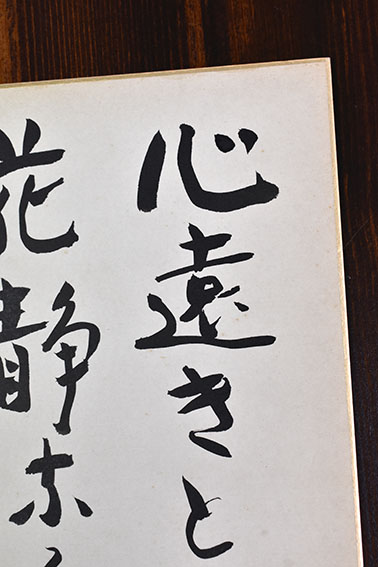 心遠きと
花静な